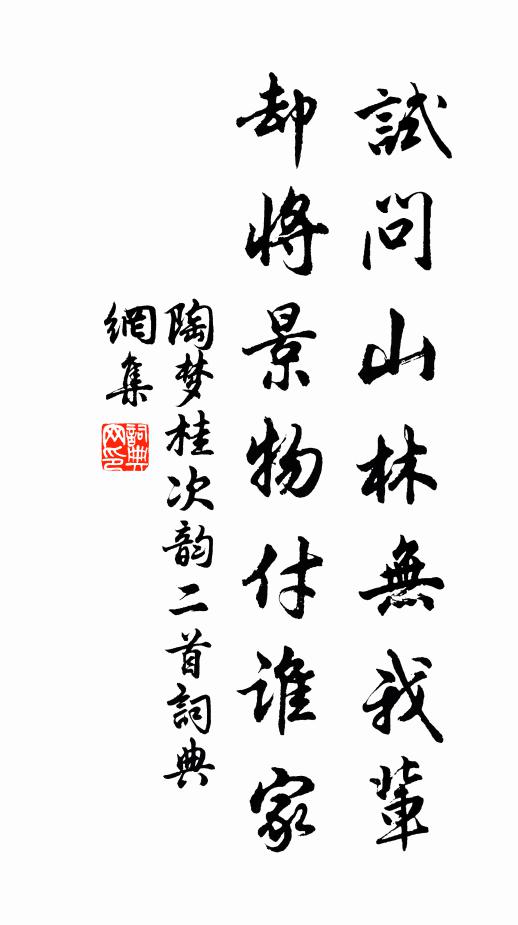 試問山林無我輩
却將景物付誰家
陶梦桂次韵二首詞典
網集
詞典
网印